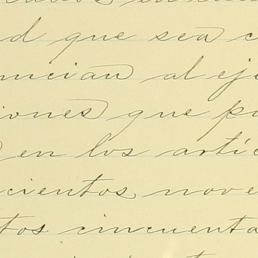 d que sea c
nuncian al eje
iones que pu
en los artíc
cientos nove
tos cincuenta